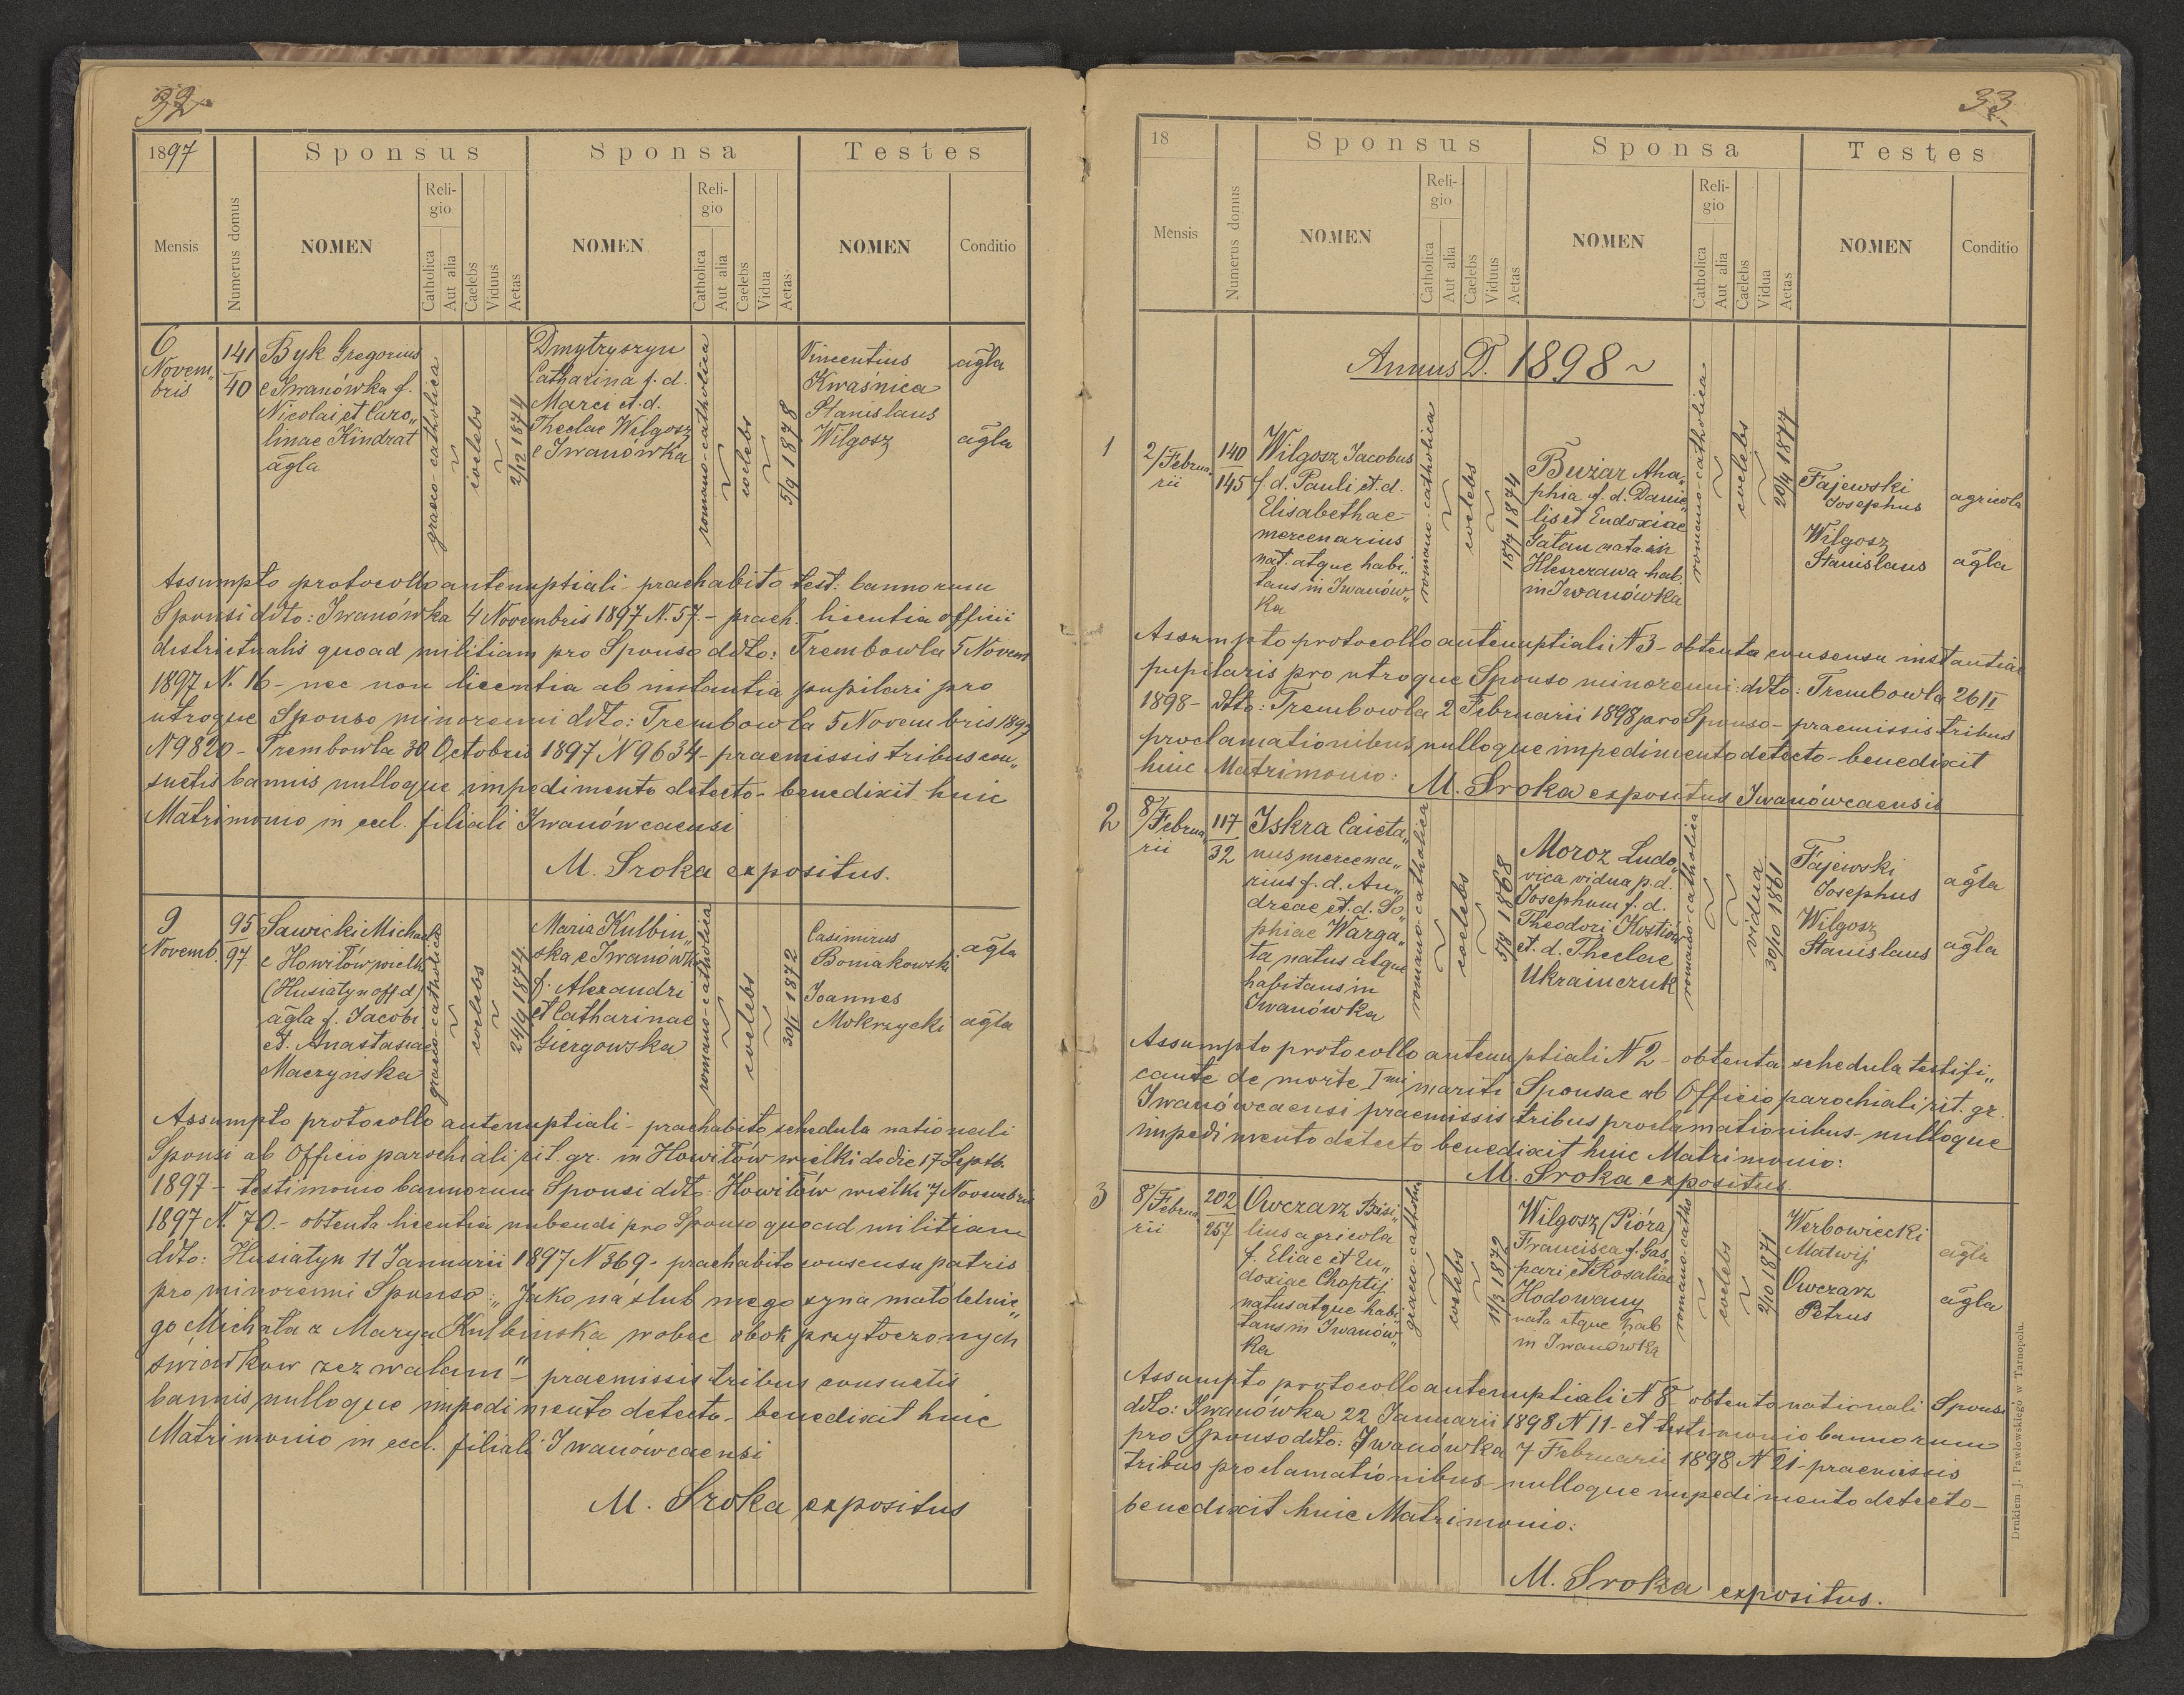 32
1897
Sponsus
Sponsa
Testes
Mensis
Numerus domus
NOMEN
Religio
Catholica
Aut alia
Caelebs
Viduus
Aetas
NOMEN
Religio
Catholica
Aut alia
Caelebs
Vidua
Aetas
NOMEN
Conditio
6
Novem„
bris
141
40
Byk Gregorius
e Iwanówka f.
Nicolai et Caro„
linae Kindrat
agla
graeco-catholica
coelebs
2/12 1874
Dmytryszyn
Catharina f. d.
Marci et. d.
Theclae Wilgosz
e Iwanówka
romano-catholica
coelebs
5/9 1878
Vincentius
Kwaśnica
Stanislaus
Wilgosz
agla
agla
Assumpto protocollo antenuptiali - praehabito test. bannorum
Sponsi ddto: Iwanówka 4 Novembris 1897 N. 57. - praeh. licentia officii
districtualis quoad militiam pro Sponso ddto: Trembowla 5 Novem
1897 N. 16 - nec non licentia ab instantia pupilari pro
utroque Sponso minorenni ddto: Trembowla 5 Novembris 1897
N 9820 - Trembowla 30 Octobris 1897 N 9634 - praemissis tribus con„
suetis bannis nulloque impedimento detecto - benedixit huic
Matrimonio in eccl. filiali Iwanówcaensi
M. Sroka expositus.
9
Novemb.
95
97.
Sawicki Michael
e Howiłów wielki
(Husiatyn off d)
agla f. Jacobi
et. Anastasiae
Maczyńska
graeco-catholica
coelebs
24/9 1874
Maria Kulbin„
ska e Iwanówka
f. Alexandri
et Catharinae
Giergowska
romano-catholica
coelebs
30/1 1872
Casimirus
Boniakowski
Joannes
Mokrzycki
agla
agla
Assumpto protocollo antenuptiali - praehabito schedula nationali
Sponsi ab Officio parochiali rit. gr. in Howiłów wielki de die 17 Septb.
1897 - testimonio bannorum Sponsi ddto: Howiłów wielki 7 Novembris
1897 N. 70. - obtenta licentia nubendi pro Sponso quoad militiam
ddto: Husiatyn 11 Januarii 1897 N 369 - praehabito consensu patris
pro minorenni Sponso: „Jako na ślub mego syna małoletnie„
go Michała z Maryą Kulbinską wobec obok przytoczonych
świadkow zezwalam" - praemissis tribus consuetis
bannis nulloque impedimento detecto - benedixit huic
Matrimonio in eccl. filiali Iwanówcaensi
M. Sroka expositus
33
18
Sponsus
Sponsa
Testes
Mensis
Numerus domus
NOMEN
Religio
Catholica
Aut alia
Caelebs
Viduus
Aetas
NOMEN
Religio
Catholica
Aut alia
Caelebs
Vidua
Aetas
NOMEN
Conditio
Annus D. 1898
1
2/Februa„
rii
140
145
Wilgosz Jacobus
f. d. Pauli et. d.
Elisabethae
mercenarius
nat. atque habi„
tans in Iwanów„
ka
romano-catholica
coelebs
18/7 1874
Bużar Aha„
phia f. d. Danie„
lis et Eudoxiae
Gatan nata in
Hleszczawa hab.
in Iwanówka
romano-catholica
coelebs
20/4 1877
Fajewski
Josephus
Wilgosz
Stanislaus
agricola
agla
Assumpto protocollo antenuptiali N 3 - obtenta consensu instantiae
pupilaris pro utroque Sponso minorenni: ddto: Trembowla 26 II
1898 - ddto: Trembowla 2 Februarii 1898 pro Sponso - praemissis tribus
proclamationibus nulloque impedimento detecto - benedixit
huic Matrimonio: M. Sroka expositus Iwanówcaensis
2
8/Februa„
rii
117
32
Iskra Caieta„
nus mercena„
rius f. d. An„
dreae et. d. So„
phiae Warga„
ta natus atque
habitans in
Iwanówka
romano-catholica
coelebs
5/8 1868
Moroz Ludo„
vica vidua p. d.
Josephum f. d.
Theodori Kostiów
et. d. Theclae
Ukrainczuk
romano-catholica
vidua
30/10 1861
Fajewski
Josephus
Wilgosz
Stanislaus
agla
agla
Assumpto protocollo antenuptiali N 2 - obtenta schedula testifi„
cante de morte Imi mariti Sponsae ab Officio parochiali rit. gr.
Iwanówcaensi praemissis tribus proclamationibus - nulloque
impedimento detecto benedixit huic Matrimonio:
M. Sroka expositus.
3
8/Februa
rii
202
257
Owczarz Basi„
lius agricola
f. Eliae et Eu„
doxiae Choptij
natus atque habi„
tans in Iwanów„
ka
graeco-cathol
coelebs
11/3 1872
Wilgosz (Pióra)
Francisca f. Gas„
pari et Rosaliae
Hodowany
nata atque hab
in Iwanówka
romano-catho
coelebs
2/10 1871
Werbowiecki
Matwij
Owczarz
Petrus
agla
agla
Assumpto protocollo antenuptiali N 8 - obtento nationali Sponsi
ddto: Iwanówka 22 Januarii 1898 N 11 - et testimonio bannorum
pro Sponso ddto: Iwanówka 7 Februarii 1898 N 21 - praemissis
tribus proclamationibus - nulloque impedimento detecto -
benedixit huic Matrimonio:
M. Sroka expositus.
Drukiem J. Pawłowskiego w Tarnopolu.